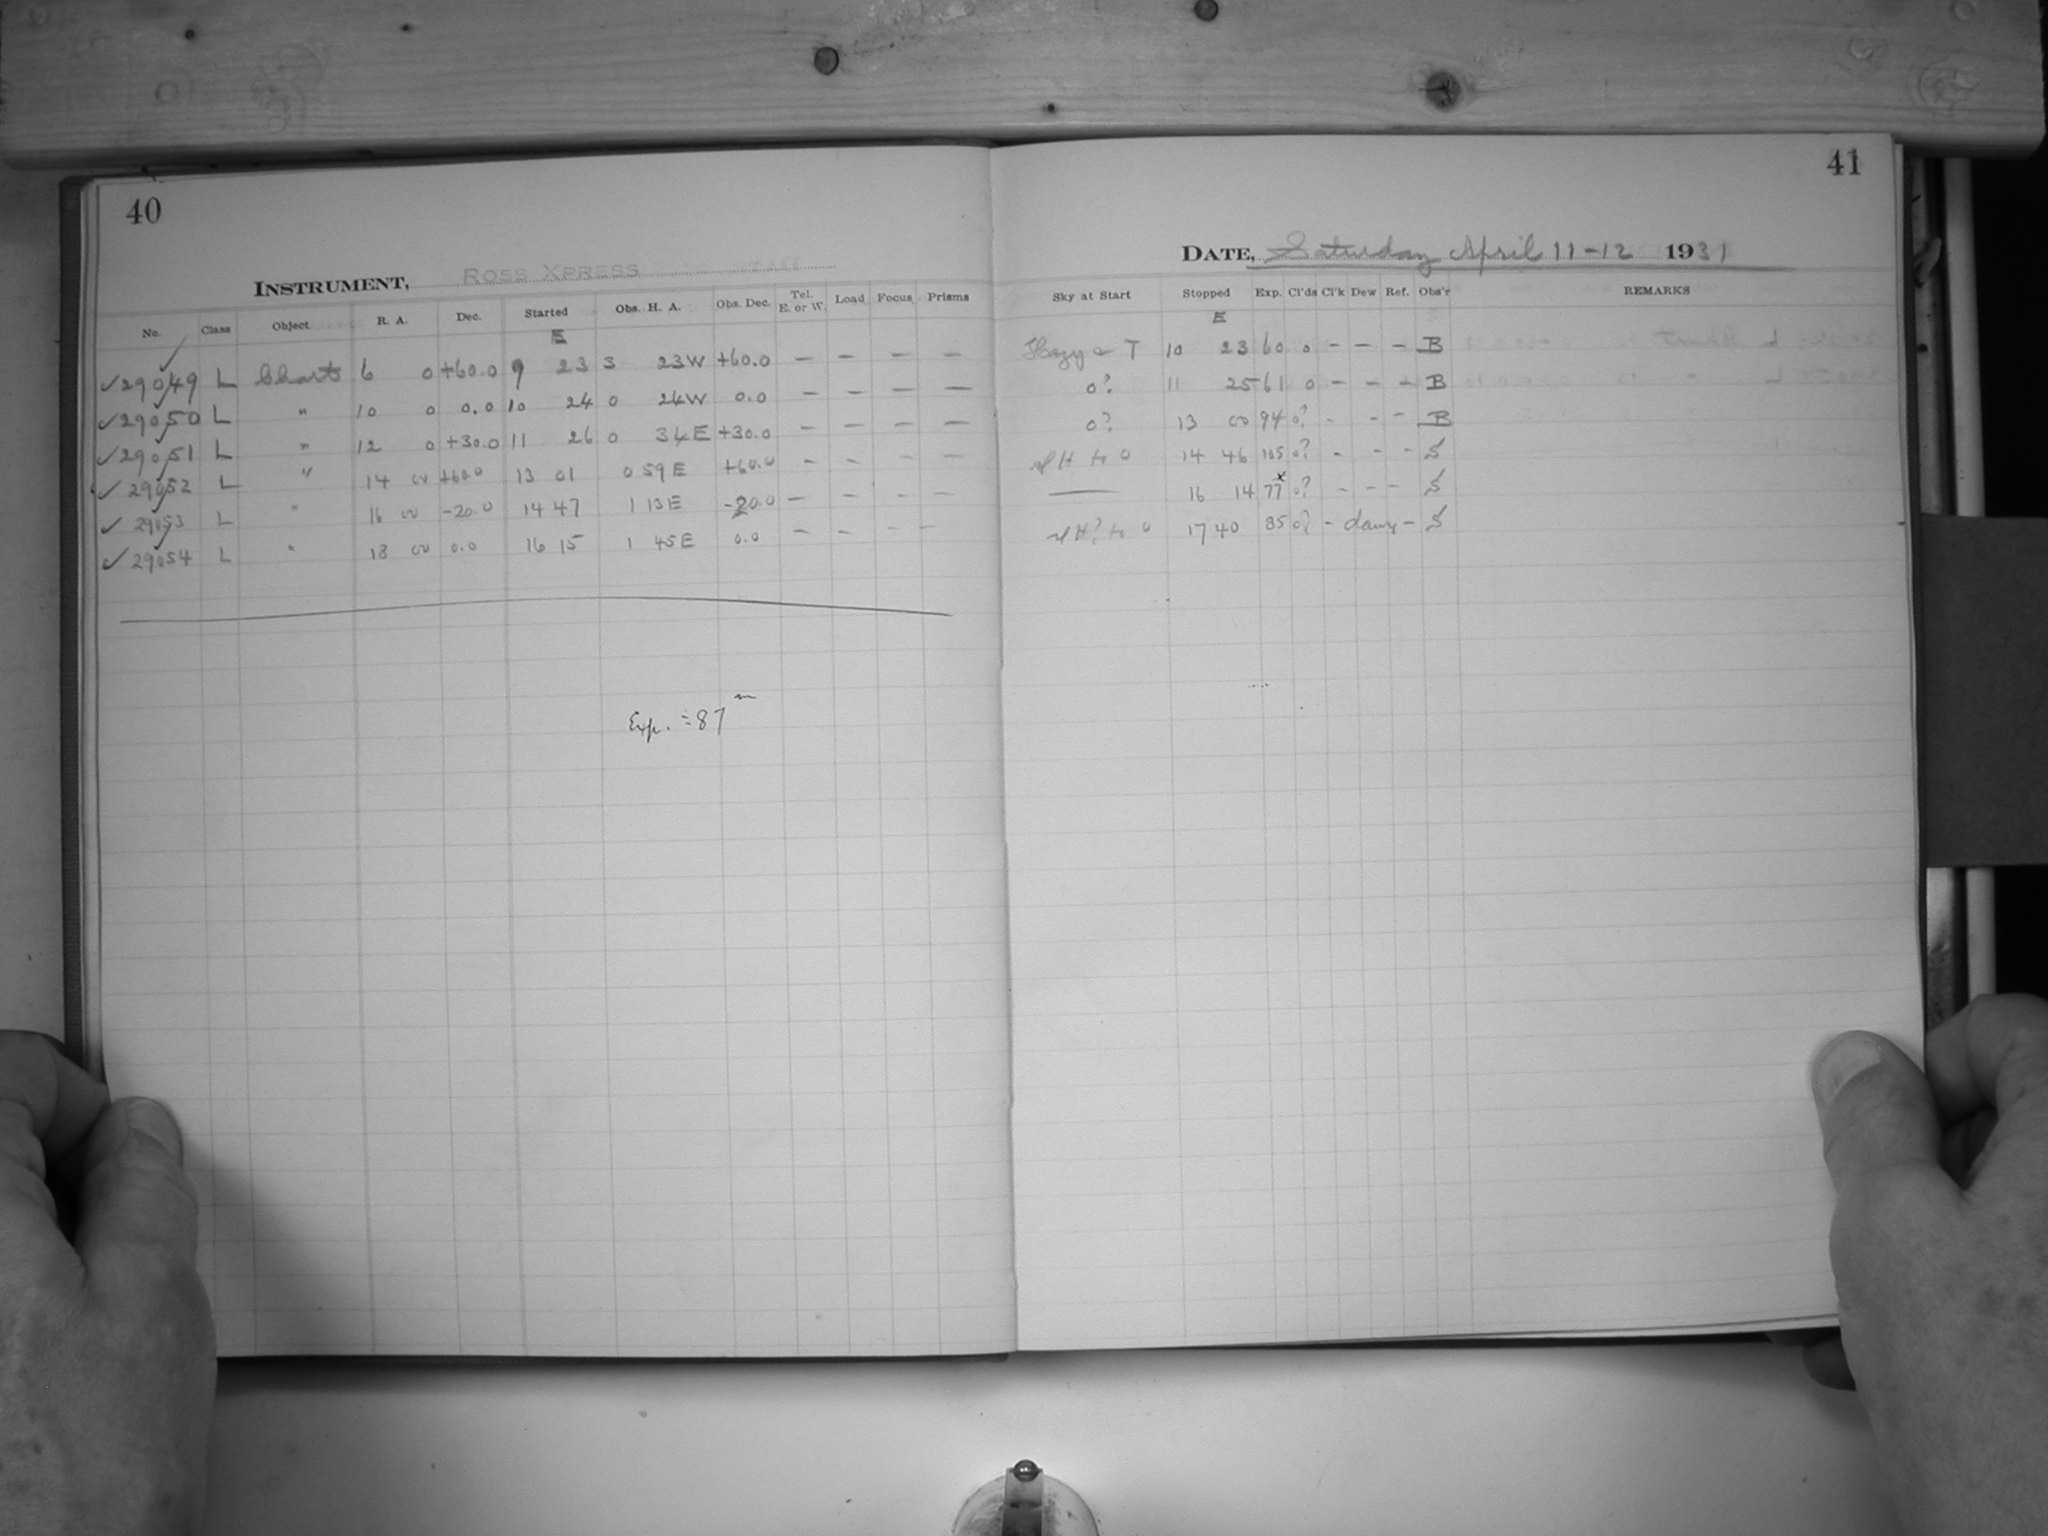 40
INSTRUMENT, ROSS XPRESS
No. Class Object R. A. Dec. Started Obs. H. A. Obs. Dec. Tel. E. or W. Load Focus Prisms
E
✓29049 L Charts 6 0 +60.0 9 23 3 23W +60.0 — — — —
✓29050 L " 10 0 0.0 10 24 0 24W 0.0 — — — —
✓29051 L " 12 0 +30.0 11 26 0 34E +30.0 — — — —
✓29052 L " 14 00 +60.0 13 01 0 59E +60.0 — — — —
✓29053 L " 16 00 -20.0 14 47 1 13E -20.0 — — — —
✓29054 L " 18 00 0.0 16 15 1 45E 0.0 — — — —
Exp. = 87 m
41
DATE, Saturday April 11-12 1931
Sky at Start Stopped Exp. Cl'ds Cl'k Dew Ref. Obs'r REMARKS
E
Hazy T 10 23 60 0 — — — B
0? 11 25 61 0 — — — B
0? 13 00 94 0? - - - B
H to 0 14 46 105 0? - - - S
— 16 14 77x 0? - - - S
H? to 0 17 40 85 0? - dawn - S